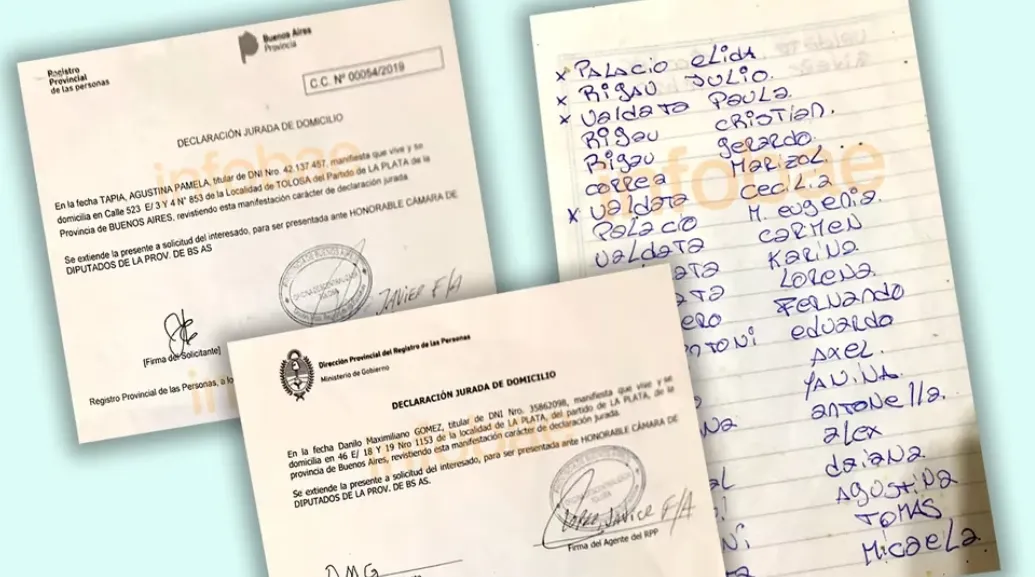 Registro
Provincial
de las personas
Buenos Aires
Provincia
C.C. Nº 00054/2019
DECLARACIÓN JURADA DE DOMICILIO
En la fecha TAPIA, AGUSTINA PAMELA, titular de DNI Nro. 42.137.457, manifiesta que vive y se
domicilia en Calle 523 E/ 3 Y 4 N° 853 de la Localidad de TOLOSA del Partido de LA PLATA de la
Provincia de BUENOS AIRES, revistiendo esta manifestación carácter de declaración jurada.
Se extiende la presente a solicitud del interesado, para ser presentada ante HONORABLE CÁMARA DE
DIPUTADOS DE LA PROV. DE BS AS
JAVIER F/A
[Firma del Solicitante]
Registro Provincial de las Personas, a lo
infobae
Dirección Provincial del Registro de las Personas
Ministerio de Gobierno
DECLARACIÓN JURADA DE DOMICILIO
En la fecha Danilo Maximiliano GOMEZ, titular de DNI Nro. 35862098, manifiesta que vive y se
domicilia en 46 E/ 18 Y 19 Nro 1153 de la localidad de LA PLATA, del partido de LA PLATA, de la
provincia de Buenos Aires, revistiendo esta manifestación carácter de declaración jurada.
Se extiende la presente a solicitud del interesado, para ser presentada ante HONORABLE CÁMARA DE
DIPUTADOS DE LA PROV. DE BS AS.
LOPEZ, JAVIER F/A
Firma del Agente del RPP
DMG
x PALACIO eLIDA
x RIGAU JULIO.
x VALDATA PAULA
RIGAU CRISTIAN.
RIGAU gerardo.
correa MARIZOL...
x VALDATA CECILIA
PALACIO M. eugenia.
VALDATA CARMEN
ATA KARINA
TA LORENA
ERO FERNANDO
NTONI eduardo
AXEL.
YANINA
NA antonella.
alex
al daiana
AGUSTINA
NI TOMAS
TA Micaela
infobae